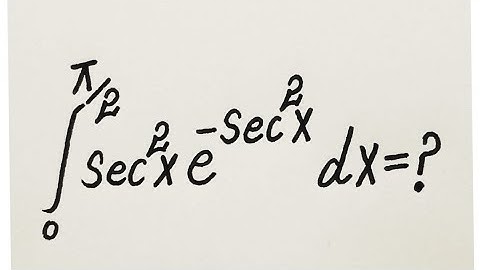 ∫₀^{π/2} sec²x e^{-sec²x} dx=?